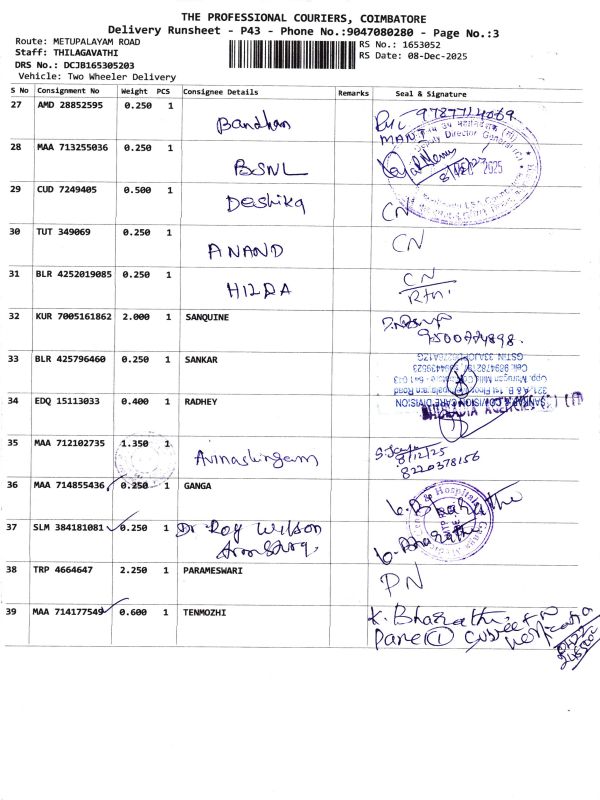 THE PROFESSIONAL COURIERS, COIMBATORE
Delivery Runsheet - P43 - Phone No.:9047080280 - Page No.:3
Route: METUPALAYAM ROAD
Staff: THILAGAVATHI
DRS No.: DCJB165305203
Vehicle: Two Wheeler Delivery
RS No.: 1653052
RS Date: 08-Dec-2025
S No Consignment No Weight PCS Consignee Details Remarks Seal & Signature
27 AMD 28852595 0.250 1 Bandhan 9787714069
28 MAA 713255036 0.250 1 BSNL
29 CUD 7249405 0.500 1 Deshika CN
30 TUT 349069 0.250 1 ANAND CN
31 BLR 4252019085 0.250 1 HILDA CN
Rtn
32 KUR 7005161862 2.000 1 SANQUINE
33 BLR 425796460 0.250 1 SANKAR
34 EDQ 15113033 0.400 1 RADHEY
35 MAA 712102735 1.350 1 Avinashingam
8/12/25
8220378156
36 MAA 714855436 0.250 1 GANGA K. Bharathi
37 SLM 384181081 0.250 1 Dr Roy Wilson K. Bharathi
38 TRP 4664647 2.250 1 PARAMESWARI PN
39 MAA 714177549 0.600 1 TENMOZHI K. Bharathi